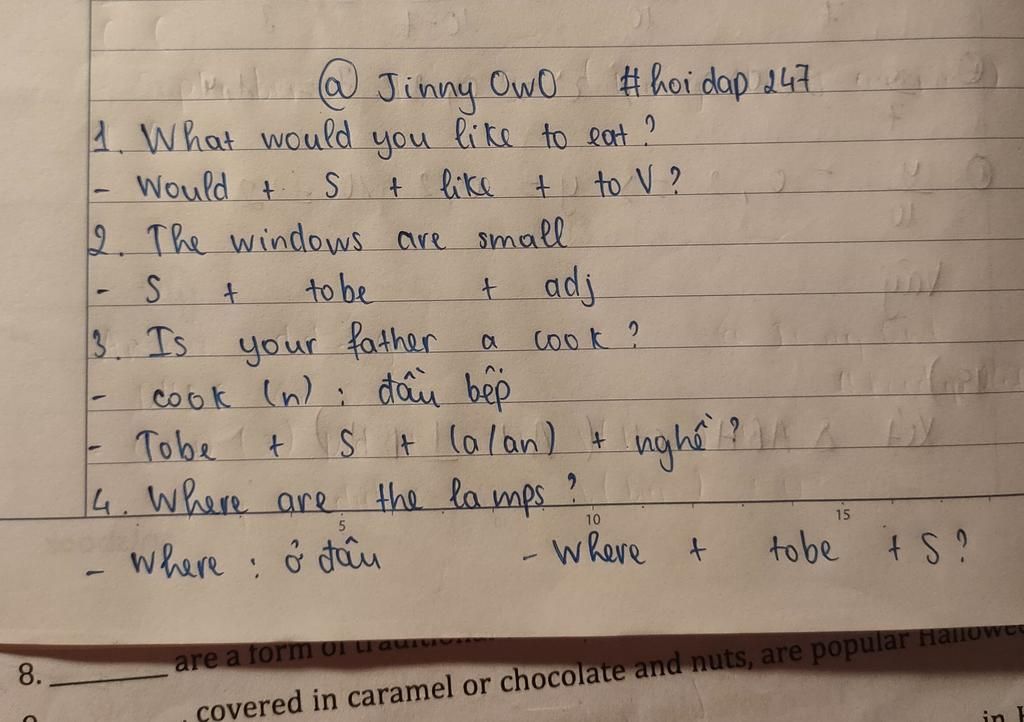 @ Jinny OwO #hoidap247
1. What would you like to eat?
- Would + S + like + to V?
2. The windows are small
- S + tobe + adj
3. Is your father a cook?
- cook (n) : đầu bếp
- Tobe + S + (a/an) + nghề?
4. Where are the lamps?
5 10 15
- Where : ở đâu - Where + tobe + S?
8. ________ are a form of
covered in caramel or chocolate and nuts, are popular
in